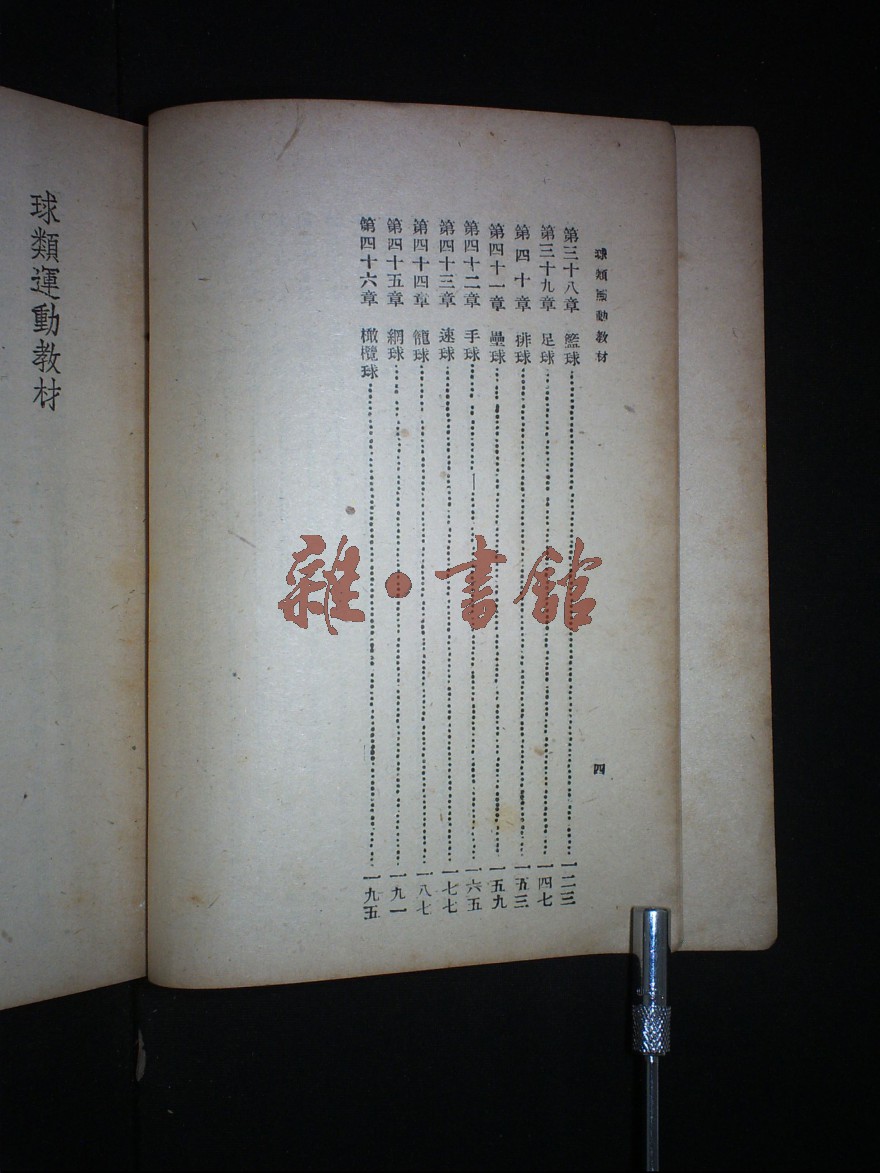 球類運動教材
第三十八章 籃球……一二三
第三十九章 足球……一四七
第四十章 排球……一五三
第四十一章 壘球……一五九
第四十二章 手球……一六五
第四十三章 速球……一七七
第四十四章 籠球……一八七
第四十五章 網球……一九一
第四十六章 橄欖球……一九五
四
球類運動教材
雜·書館